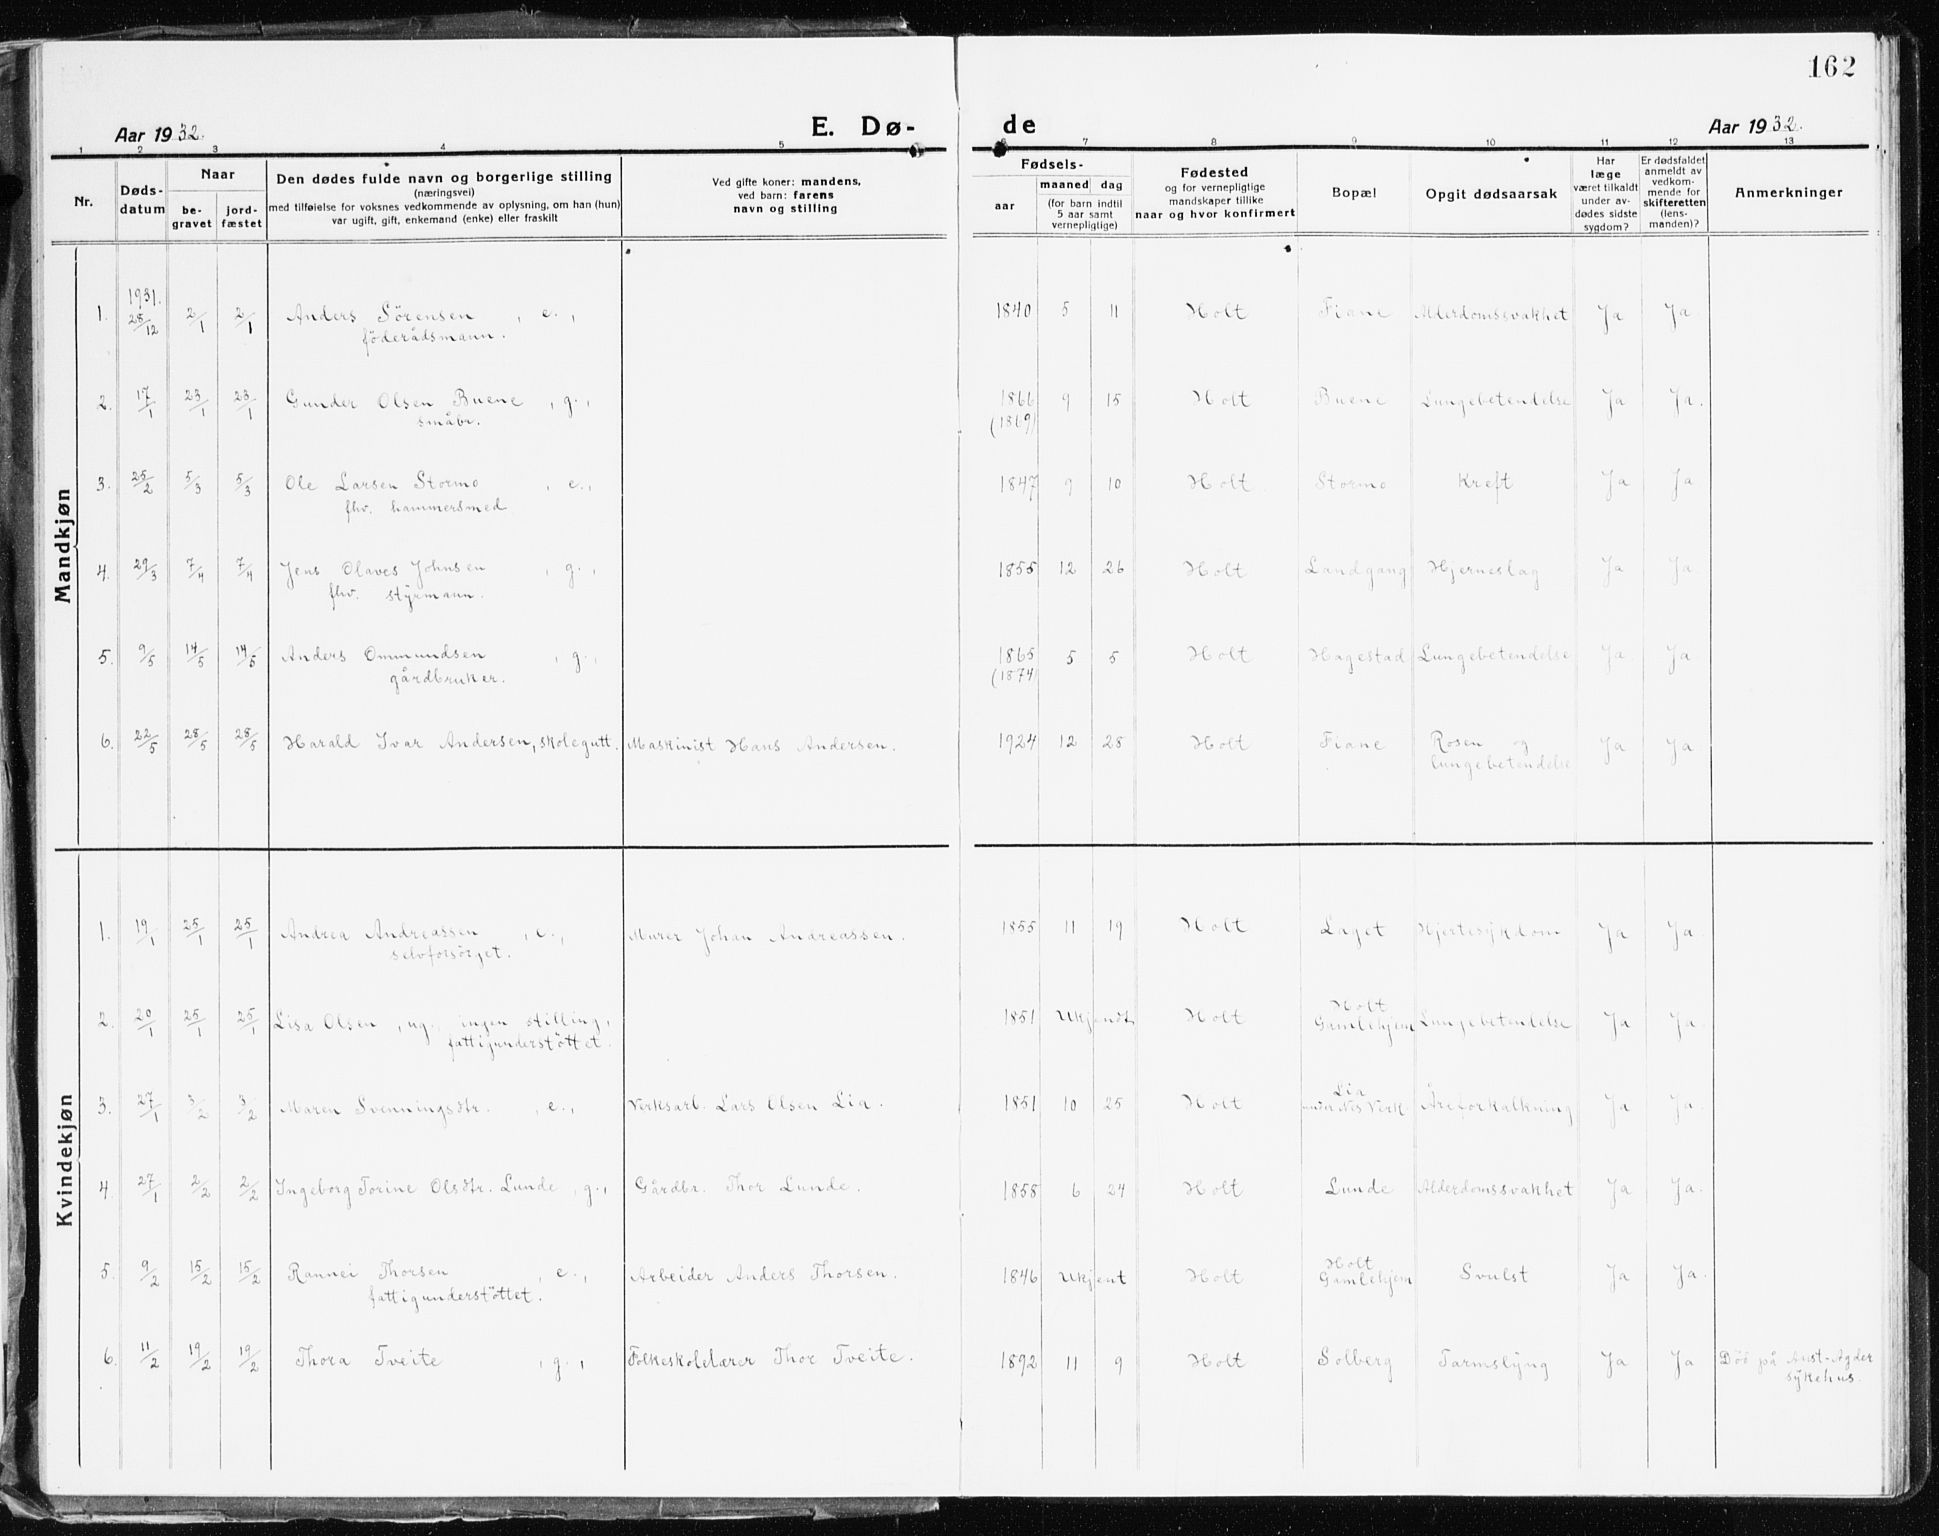 162
Aar 1932.
E. Dø-
de
Aar 1932.
1 2 3 4 5 6 7 8 9 10 11 12 13
Nr.
Døds-
datum
Naar
be-
gravet
jord-
fæstet
Den dødes fulde navn og borgerlige stilling
(næringsvei)
med tilføielse for voksnes vedkommende av oplysning, om han (hun)
var ugift, gift, enkemand (enke) eller fraskilt
Ved gifte koner: mandens,
ved barn: farens
navn og stilling
Fødsels-
aar
maaned dag
(for barn indtil
5 aar samt
vernepligtige)
Fødested
og for vernepligtige
mandskaper tillike
naar og hvor konfirmert
Bopæl
Opgit dødsaarsak
Har
læge
været tilkaldt
under av-
dødes sidste
sygdom?
Er dødsfaldet
anmeldt av
vedkom-
mende for
skifteretten
(lens-
manden)?
Anmerkninger
Mandkjøn
1931.
1. 28/12 2/1 2/1 Anders Sörensen , e., 1840 5 11 Holt Fiane Alderdomssvakhet Ja Ja.
föderådsmann.
2. 17/1 23/1 23/1 Gunder Olsen Buene , g., 1866 9 15 Holt Buene Lungebetendelse Ja Ja.
småbr. (1869)
3. 25/2 5/3 5/3 Ole Larsen Stormo , e., 1847 9 10 Holt Stormo Kreft Ja Ja
fhv. hammersmed
4. 29/3 7/4 7/4 Jens Olaves Johnsen , g., 1855 12 26 Holt Landgang Hjerneslag Ja Ja.
fhv. styrmann.
5. 9/5 14/5 14/5 Anders Ommundsen , g., 1865 5 5 Holt Hagestad Lungebetendelse Ja. Ja
gårdbruker. (1874)
6. 22/5 28/5 28/5 Harald Ivar Andersen, skolegutt. Maskinist Hans Andersen. 1924 12 28 Holt Fiane Rosen og Ja Ja.
lungebetendelse
Kvindekjøn
1. 19/1 25/1 25/1 Andrea Andreassen , e., Murer Johan Andreassen. 1855 11 19 Holt Laget Hjertesykdom Ja Ja.
selvforsörget.
Holt
2. 20/1 25/1 25/1 Lisa Olsen , ug., ingen stilling, 1851 Ukjendt Holt Gamlehjem Lungebetendelse Ja Ja.
fattigunderstöttet.
Lia
3. 27/1 3/2 3/2 Maren Svenningsdtr. , e., Verksarb. Lars Olsen Lia. 1851 10 25 Holt under Nes Verk. Åreforkalkning Ja Ja.
4. 27/1 2/2 2/2 Ingeborg Torine Olsdtr. Lunde , g., Gårdbr. Thor Lunde. 1858 6 24 Holt Lunde Alderdomssvakhet Ja Ja.
Holt
5. 9/2 15/2 15/2 Rannei Thorsen , e., Arbeider Anders Thorsen. 1846 Ukjent Holt Gamlehjem Svulst Ja Ja.
fattigunderstöttet.
6. 11/2 19/2 19/2 Thora Tveite , g., Folkeskolelærer Thor Tveite. 1892 11 9 Holt Solberg Tarmslyng Ja Ja Död på Aust-Agder
sykehus.